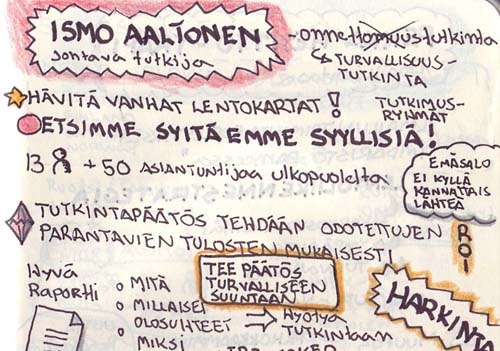 ISMO AALTONEN
Johtava tutkija
- onnettomuustutkinta
↳ TURVALLISUUS-
TUTKINTA
☆ HÄVITÄ VANHAT LENTOKARTAT!
TUTKIMUS-
RYHMÄT
ETSIMME SYITÄ EMME SYYLLISIÄ!
13 + 50 ASIANTUNTIJAA ULKOPUOLELTA
EMÄSALO
EI KYLLÄ
KANNATTAIS
LÄHTEÄ
TUTKINTAPÄÄTÖS TEHDÄÄN ODOTETTUJEN
PARANTAVIEN TULOSTEN MUKAISESTI
ROI
HYVÄ
RAPORTTI
TEE PÄÄTÖS
TURVALLISEEN
SUUNTAAN
o MITÄ
o MILLAISET
OLOSUHTEET
o MIKSI
⇒ HYÖTYÄ
TUTKINTAAN
HARKINTA